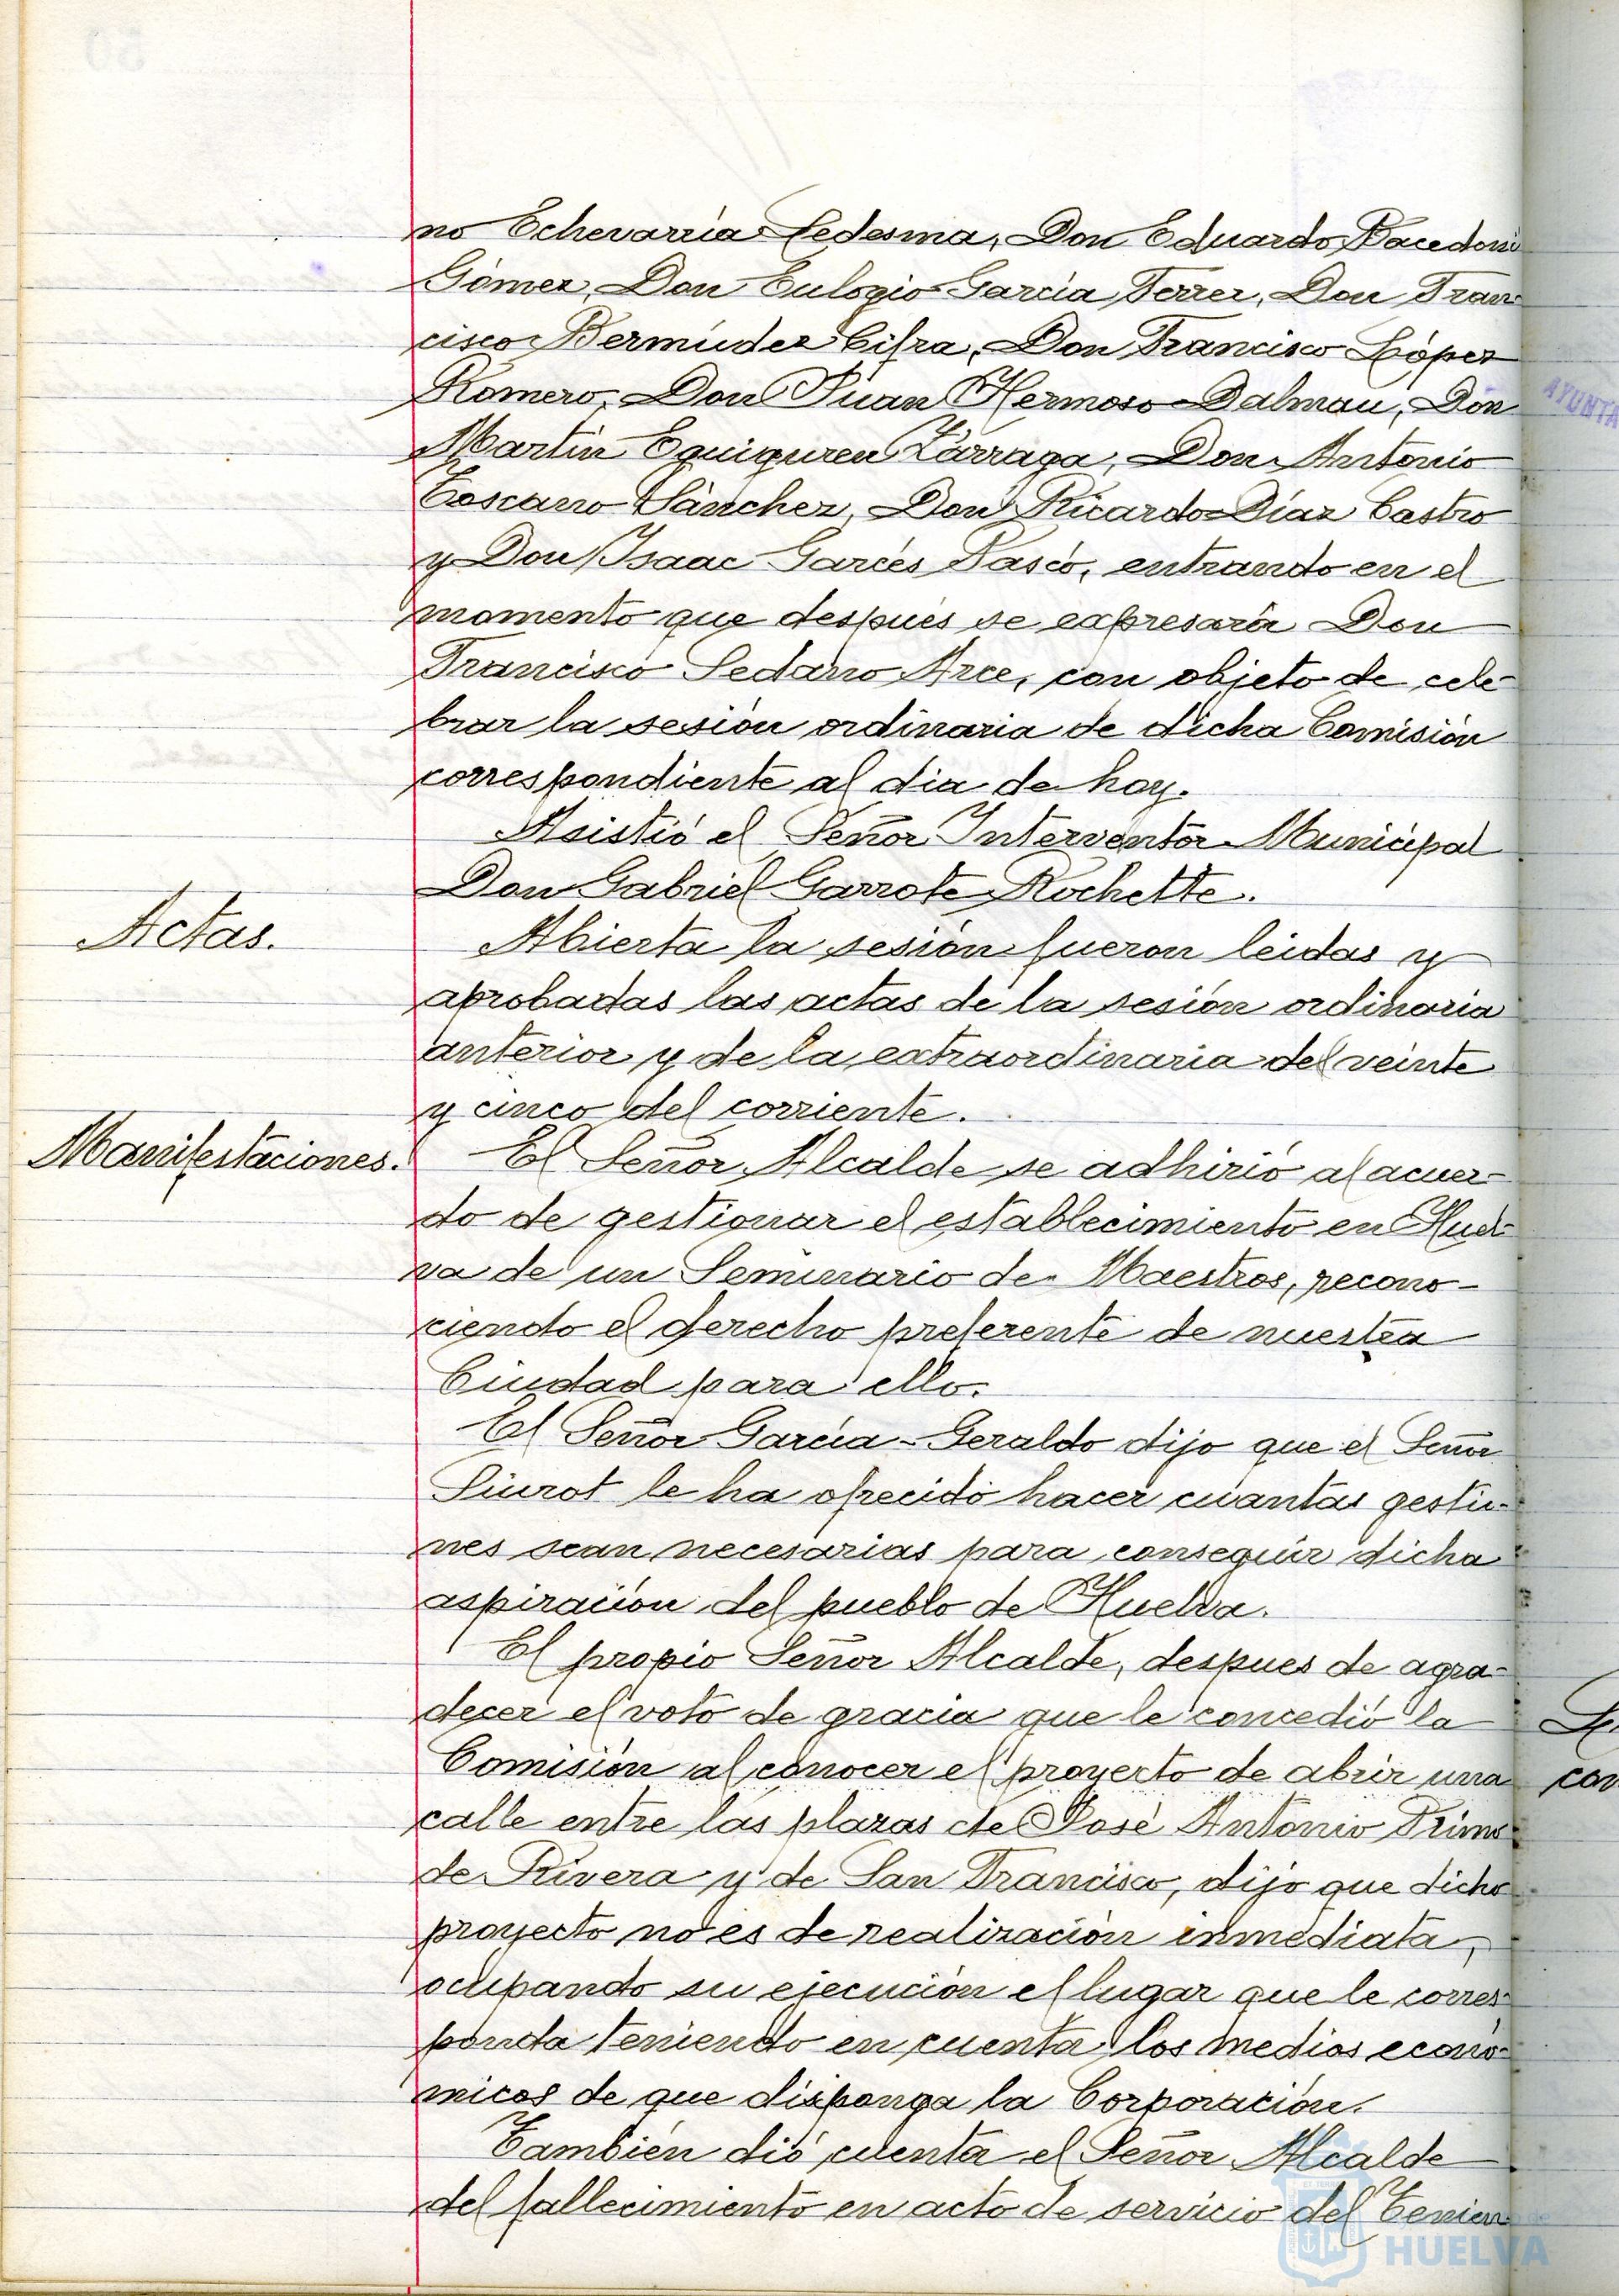 no Echevarría Ledesma, Don Eduardo
Gómez, Don Eulogio García Ferrer, Don Fran
cisco Bermúdez Cifra, Don Francisco López
Romero, Don Juan Hermoso Dalmau, Don
Martín Eguiguren Zárraga, Don Antonio
Toscano Sánchez, Don Ricardo Díaz Castro
y Don Isaac Garcés Pascó, entrando en el
momento que después se expresará Don
Francisco Sedano Arce, con objeto de cele-
brar la sesión ordinaria de dicha Comisión
correspondiente al dia de hoy.
Asistió el Señor Interventor Municipal
Don Gabriel Garrote Rochette.
Actas.
Abierta la sesión fueron leidas y
aprobadas las actas de la sesión ordinaria
anterior y de la extraordinaria del veinte
y cinco del corriente.
Manifestaciones.
El Señor Alcalde se adhirió al acuer-
do de gestionar el establecimiento en Huel-
va de un Seminario de Maestros, recono-
ciendo el derecho preferente de nuestra
Ciudad para ello.
El Señor García-Geraldo dijo que el Señor
Siurot le ha ofrecido hacer cuantas gestio-
nes sean necesarias para conseguir dicha
aspiración del pueblo de Huelva.
El propio Señor Alcalde, despues de agra-
decer el voto de gracia que le concedió la
Comisión al conocer el proyecto de abrir una
calle entre las plazas de José Antonio Primo
de Rivera y de San Francisco, dijo que dicho
proyecto no es de realización inmediata,
ocupando su ejecución el lugar que le corres-
ponda teniendo en cuenta los medios econó-
micos de que disponga la Corporación.
También dió cuenta el Señor Alcalde
del fallecimiento en acto de servicio del Tenien
AYUNTA
con
HUELVA